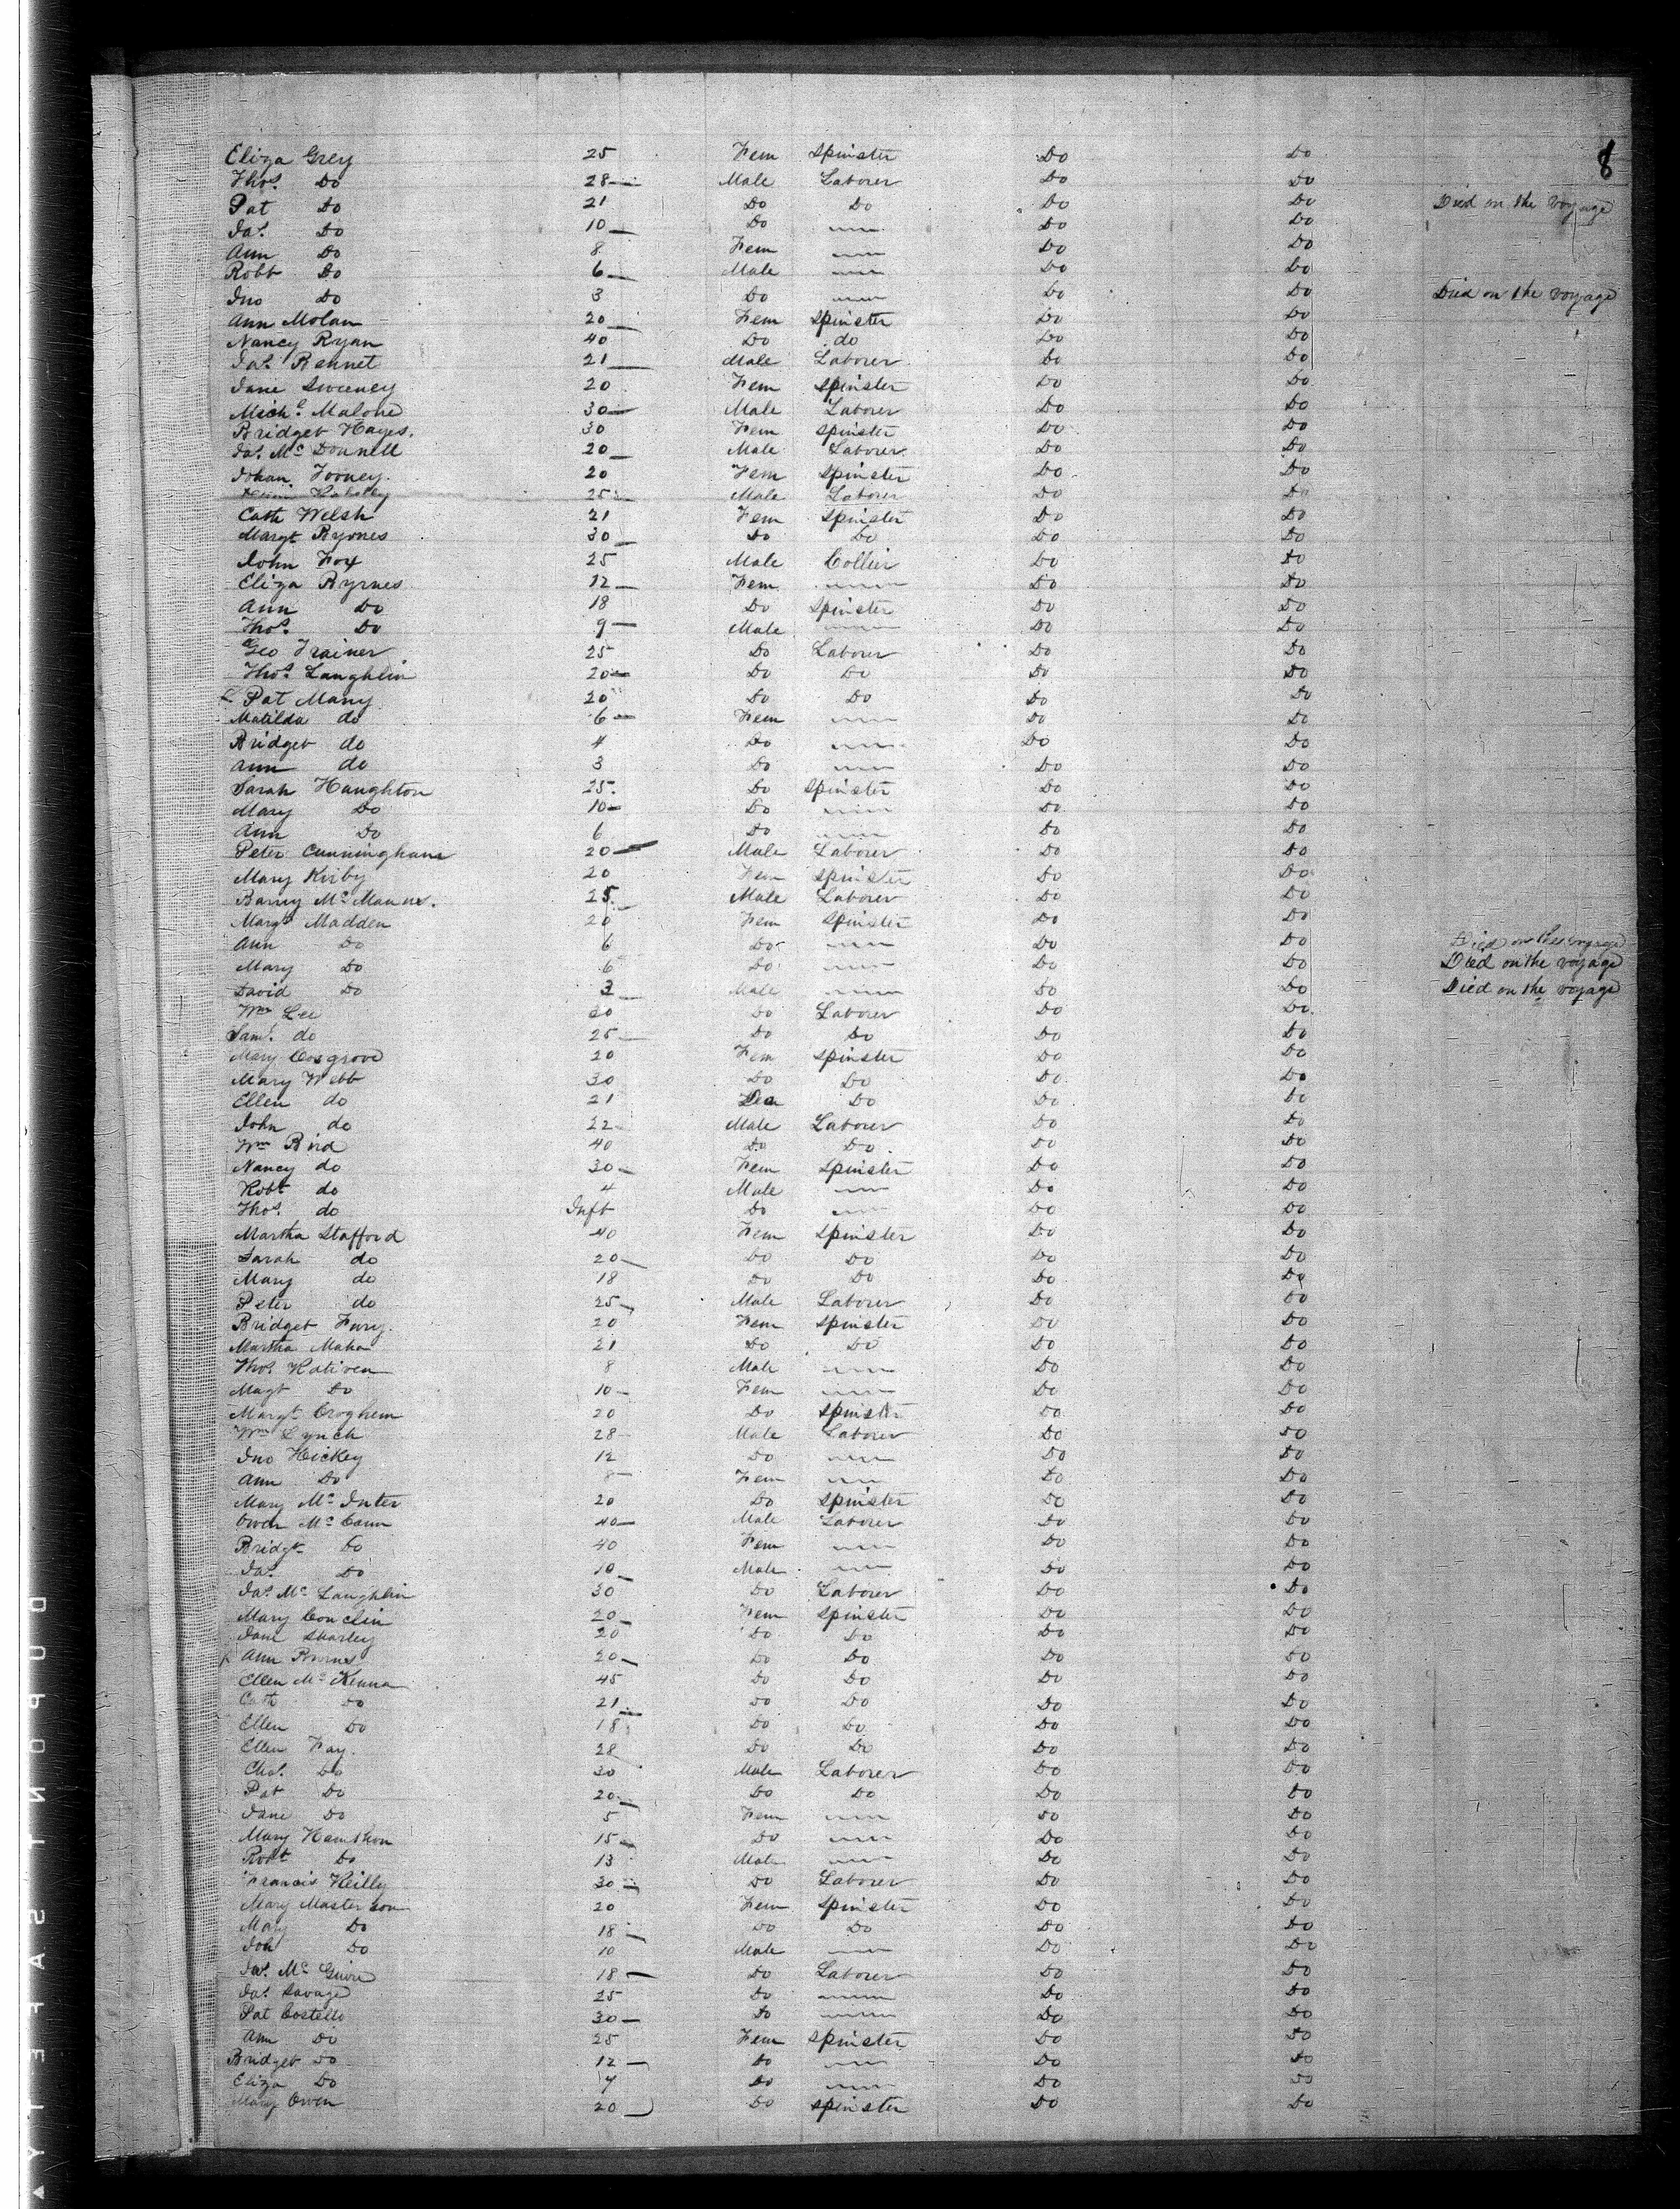 8
Eliza Grey 25 Fem Spinster Do Do
Thos. Do 28 Male Laborer Do Do
Pat Do 21 Do Do Do Do Died on the voyage
Jas. Do 10 Do Do Do
Ann Do 8 Fem Do Do
Robt Do 6 Male Do Do
Jno Do 3 Do Do Do Died on the voyage
Ann Molan 20 Fem Spinster Do Do
Nancy Ryan 40 Do do Do Do
Jas. Bennet 21 Male Laborer Do Do
Jane Sweeney 20 Fem Spinster Do Do
Michl. Malone 30 Male Laborer Do Do
Bridget Hayes. 30 Fem Spinster Do Do
Jas. Mc Donnell 20 Male Laborer Do Do
Johan. Tooney. 20 Fem Spinster Do Do
25 Male Laborer Do Do
Cath Welsh 21 Fem Spinster Do Do
Margt Byrnes 30 Do Do Do Do
John Fox 25 Male Collier Do Do
Eliza Byrnes 12 Fem Do Do
Ann Do 18 Do Spinster Do Do
Thos. Do 9 Male Do Do
Geo Trainer 25 Do Laborer Do Do
Thos. Laughlin 20 Do Do Do Do
Pat Many 20 Do Do Do Do
Matilda do 6 Fem Do Do
Bridget do 4 Do Do Do
Ann do 3 Do Do Do
Sarah Haughton 25 Do Spinster Do Do
Mary Do 10 Do Do Do
Ann Do 6 Do Do Do
Peter Cunningham 20 Male Laborer Do Do
Mary Kirby 20 Fem Spinster Do Do
Barny Mc Manus. 25 Male Laborer Do Do
Margt Madden 20 Fem Spinster Do Do
Ann Do 6 Do Do Do Died on the voyage
Mary Do 6 Do Do Do Died on the voyage
David Do 3 Male Do Do Died on the voyage
Wm Lee 20 Do Laborer Do Do
Saml. do 25 Do Do Do Do
Mary Cosgrove 20 Fem Spinster Do Do
Mary Webb 30 Do Do Do Do
Ellen do 21 Do Do Do
John do 22 Male Laborer Do Do
Wm Bird 40 Do Do Do Do
Nancy do 30 Fem Spinster Do Do
Robt do 4 Male Do Do
Thos. do Inft Do Do Do
Martha Stafford 40 Fem Spinster Do Do
Sarah do 20 Do Do Do Do
Mary do 18 Do Do Do Do
Peter do 25 Male Laborer Do Do
Bridget Fury. 20 Fem Spinster Do Do
Martha Maha 21 Do Do Do Do
Thos. 8 Male Do Do
Magt Do 10 Fem Do Do
Margt. Croghem 20 Do Spinster Do Do
Wm Lynch 28 Male Laborer Do Do
Jno Hickey 12 Do Do Do
Ann Do 8 Fem Do Do
Mary Mc Inter 20 Do Spinster Do Do
Owen Mc Cann 40 Male Laborer Do Do
Bridgt Do 40 Fem Do Do
Jas. Do 10 Male Do Do
Jas. Mc Laughlin 30 Do Laborer Do Do
Mary Conclin 20 Fem Spinster Do Do
Jane Sharley 20 Do Do Do Do
Ann Burnes 20 Do Do Do Do
Ellen Mc Kenna 45 Do Do Do Do
Cath Do 21 Do Do Do Do
Ellen Do 18 Do Do Do Do
Ellen Fay. 28 Do Do Do Do
Chas. Do 30 Male Laborer Do Do
Pat Do 20 Do Do Do Do
Jane Do 5 Fem Do Do
Mary 15 Do Do Do
Robt Do 13 Male Do Do
Francis Reilly 30 Do Laborer Do Do
Mary Masterson 20 Fem Spinster Do Do
May Do 18 Do Do Do Do
Joh Do 10 Male Do Do
Jas. Mc Guire 18 Do Laborer Do Do
Jas. Savage 25 Do Do Do
Pat Costello 30 Do Do Do
Ann Do 25 Fem Spinster Do Do
Bridget Do 12 Do Do Do
Eliza Do Do Do Do
Mary Owen 20 Do Spinster Do Do